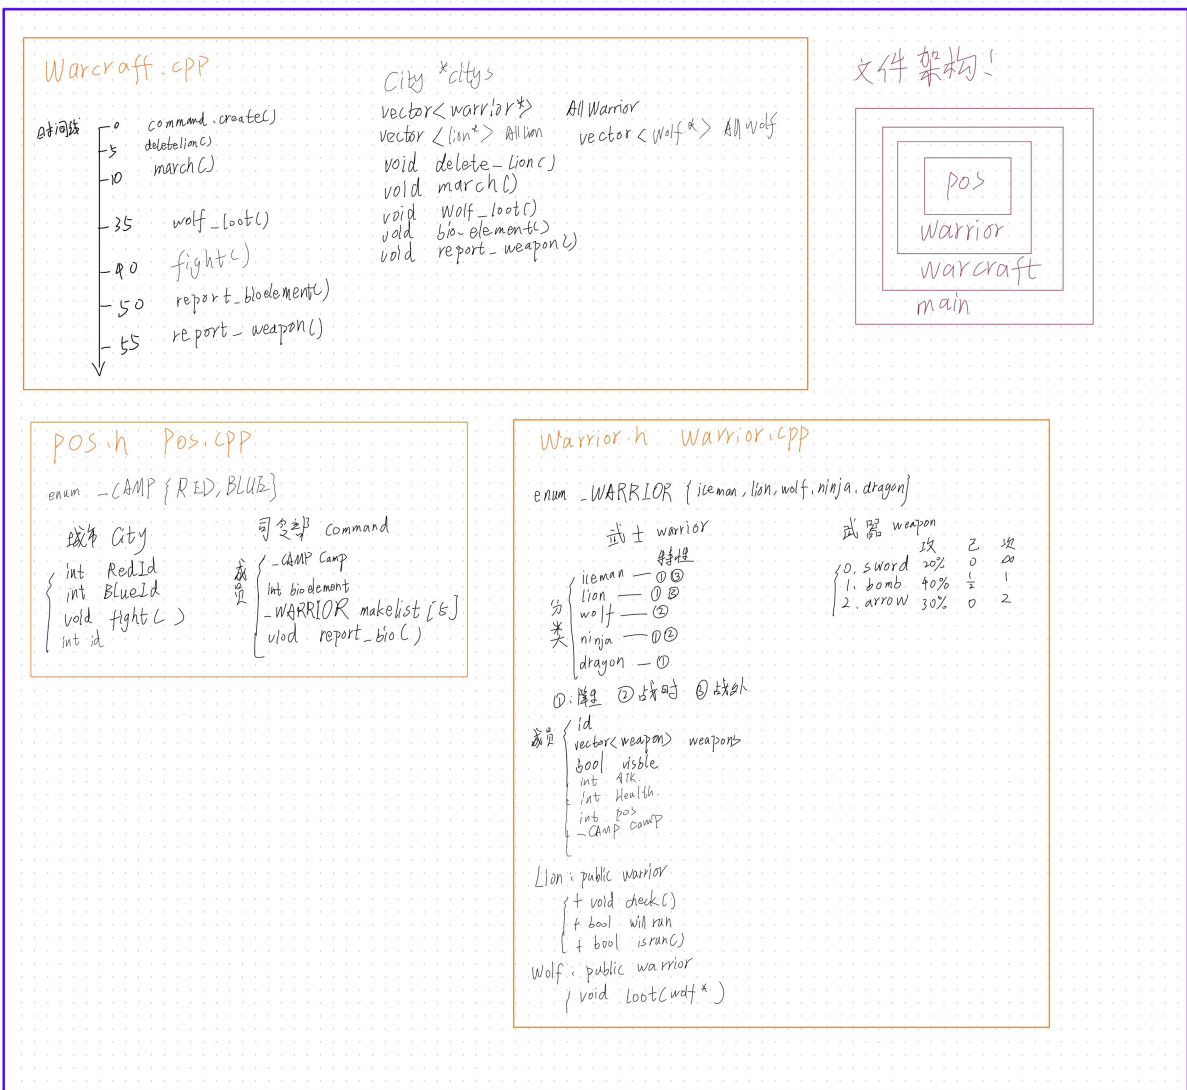 Warcraft.cpp
时间线
0 command.create()
5 deletelion()
10 march()
35 wolf_loot()
40 fight()
50 report_bioelement()
55 report_weapon()
City *citys
vector<warrior*> All Warrior
vector<lion*> All lion vector<wolf*> All wolf
void delete_lion()
void march()
void wolf_loot()
void bio_element()
void report_weapon()
文件架构!
pos
warrior
warcraft
main
pos.h Pos.cpp
enum _CAMP {RED, BLUE}
城市 City
int RedId
int BlueId
void fight()
int id
司令部 command
成员
_CAMP Camp
int bioelement
_WARRIOR makelist[5]
viod report_bio()
Warrior.h Warrior.cpp
enum _WARRIOR {iceman, lion, wolf, ninja, dragon}
武士 warrior
特性
分类
iceman — ①③
lion — ①③
wolf — ②
ninja — ①②
dragon — ①
①:降生 ②战时 ③战外
武器 weapon
攻 己 次
0. sword 20% 0 ∞
1. bomb 40% 1/2 1
2. arrow 30% 0 2
成员
id
vector<weapon> weapons
bool visble
int ATK
int Health
int pos
_CAMP camp
Lion: public warrior
+ void check()
+ bool will run
+ bool isrun()
Wolf: public warrior
void loot(wolf*)